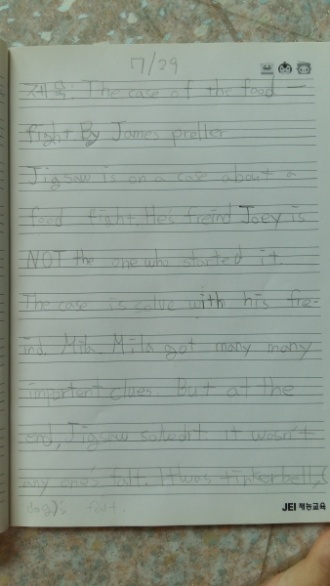 7/29
제목: The case of the food -
fight. By James preller
Jigsaw is on a case about a
food fight. He's freind Joey is
NOT the one who started it.
The case is solve with his fre-
ind. Mila. Mila got many many
important clues. But at the
end, Jigsaw solved it. It wasn't
any one's falt. It was tinkerbell,(
dog)'s falt.
JEI 재능교육